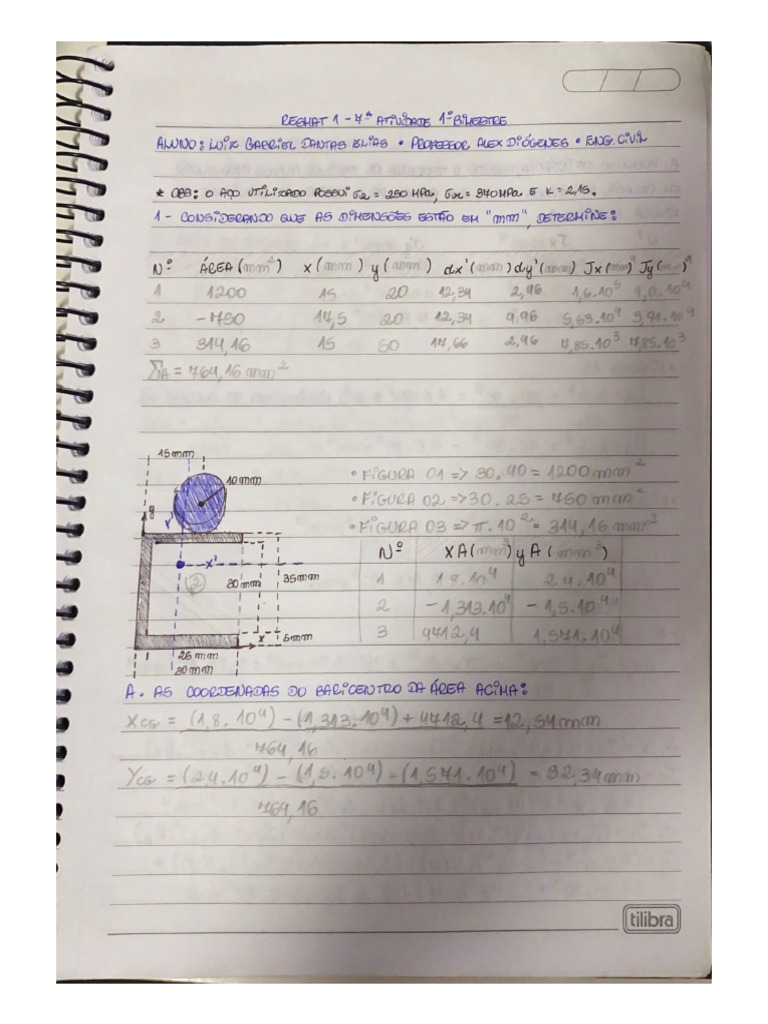 RESMAT 1 - 7ª ATIVIDADE 1º BIMESTRE
ALUNO: LUIZ GABRIEL DANTAS ELIAS • PROFESSOR ALEX DIÓGENES • ENG. CIVIL
* OBS: O AÇO UTILIZADO POSSUI = 250 MPa, = 370 MPa E K = 2,15.
1 - CONSIDERANDO QUE AS DIMENSÕES ESTÃO EM "mm", DETERMINE:
Nº ÁREA (mm²) x (mm) y (mm) dx' (mm) dy' (mm) Jx (mm)⁴ Jy (mm)⁴
1 1200 15 20 12,34 2,46 1,6.10⁵ 9,0.10⁴
2 -750 17,5 20 12,34 4,96 5,63.10⁴ 3,91.10⁴
3 314,16 15 50 17,66 2,46 7,85.10³ 7,85.10³
ΣA = 764,16 mm²
15 mm
10 mm
• FIGURA 01 => 30.40 = 1200 mm²
• FIGURA 02 => 30.25 = 750 mm²
• FIGURA 03 => π.10² = 314,16 mm²
y
y'
x'
2
30 mm
35 mm
x
5 mm
1
25 mm
30 mm
Nº XA (mm³) yA (mm³)
1 1,8.10⁴ 2,4.10⁴
2 -1,313.10⁴ -1,5.10⁴
3 4712,4 1,571.10⁴
A. AS COORDENADAS DO BARICENTRO DA ÁREA ACIMA:
XCG = (1,8.10⁴) - (1,313.10⁴) + 4712,4 = 12,54 mm
764,16
YCG = (2,4.10⁴) - (1,5.10⁴) - (1,571.10⁴) = 32,34 mm
764,16
tilibra